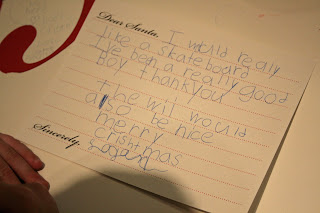 Dear Santa, I would realy
like a skateboard
I've ben a really good
Boy thankyou
the wii would
also be nice
merry
crishtmas
Sincerely, Logan